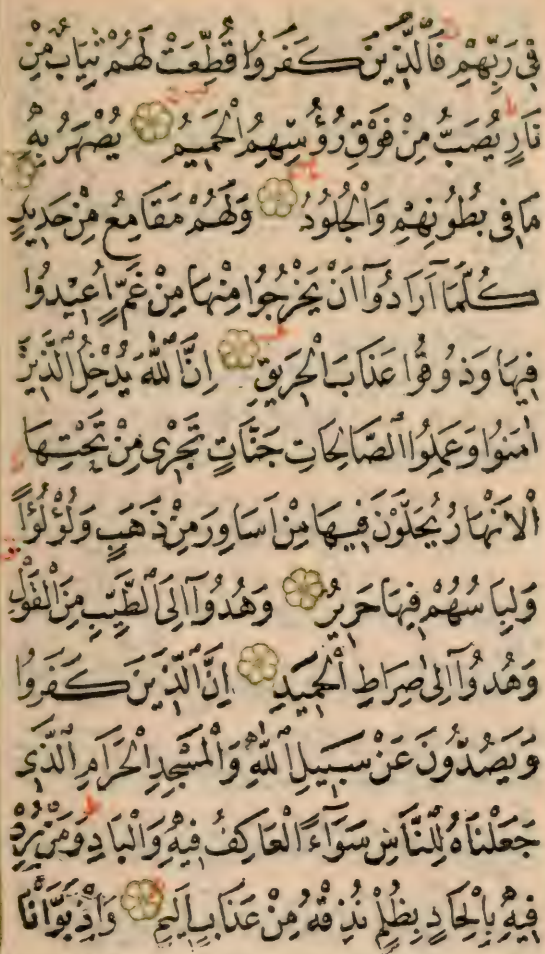 فِى رَبِّهِمْ فَالَّذِينَ كَفَرُوا قُطِّعَتْ لَهُمْ ثِيَابٌ مِنْ
نَارٍ يُصَبُّ مِنْ فَوْقِ رُؤُسِهِمُ الْحَمِيمُ يُصْهَرُ بِهِ
مَا فِى بُطُونِهِمْ وَالْجُلُودُ وَلَهُمْ مَقَامِعُ مِنْ حَدِيدٍ
كُلَّمَآ اَرَادُوآ اَنْ يَخْرُجُوا مِنْهَا مِنْ غَمٍّ اُعِيدُوا
فِيهَا وَذُوقُوا عَذَابَ الْحَرِيقِ اِنَّ اللّٰهَ يُدْخِلُ الَّذِينَ
اٰمَنُوا وَعَمِلُوا الصَّالِحَاتِ جَنَّاتٍ تَجْرِى مِنْ تَحْتِهَا
الْاَنْهَارُ يُحَلَّوْنَ فِيهَا مِنْ اَسَاوِرَ مِنْ ذَهَبٍ وَلُؤْلُؤًا
وَلِبَاسُهُمْ فِيهَا حَرِيرٌ وَهُدُوآ اِلَى الطَّيِّبِ مِنَ الْقَوْلِ
وَهُدُوآ اِلٰى صِرَاطِ الْحَمِيدِ اِنَّ الَّذِينَ كَفَرُوا
وَيَصُدُّونَ عَنْ سَبِيلِ اللّٰهِ وَالْمَسْجِدِ الْحَرَامِ الَّذِى
جَعَلْنَاهُ لِلنَّاسِ سَوَآءً الْعَاكِفُ فِيهِ وَالْبَادِ وَمَنْ يُرِدْ
فِيهِ بِاِلْحَادٍ بِظُلْمٍ نُذِقْهُ مِنْ عَذَابٍ اَلِيمٍ وَاِذْ بَوَّاْنَا